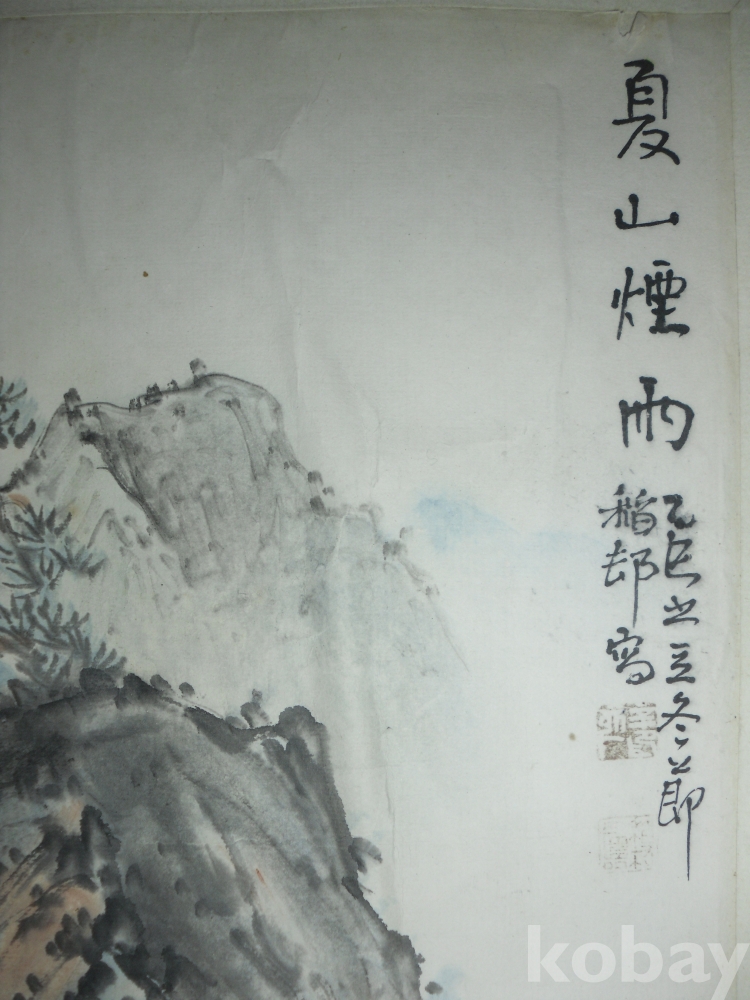 夏山煙雨
乙巳之立冬節
稻邨寫
kobay